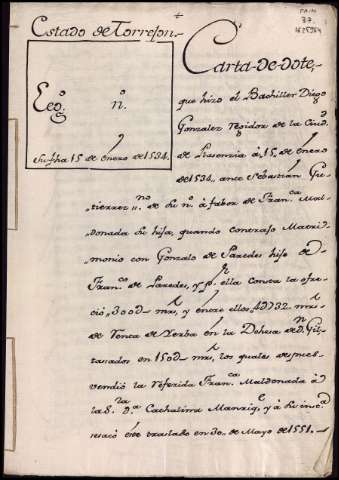 Estado de Torrejon.
Leg.º n.º
Su fha 15 de enero de 1534.
Carta-de-dote,
que hizo el Bachiller Diego
Gonzalez Regidor de la Ciud.
de Plasenzia à 15 de enero
de 1534, ante Sebastian Gu-
tierrez no de Su nº. à fabor de Fran.ca Mal-
donada Su hija, quando contrajo Matri-
monio con Gonzalo de Paredes hijo de
Fran.co de Paredes, y p.r ella consta la ofre-
ció, 300d mrs, y entre ellos, 4d732 mrs
de Renta de Yerba en la Dehesa de
tasados en 150d mrs, los quales despues
vendió la referida Fran.ca Maldonada à
la S.ra D.a Cathalina Manriq.e y à
sacó este traslado en 30. de Mayo de 1551.